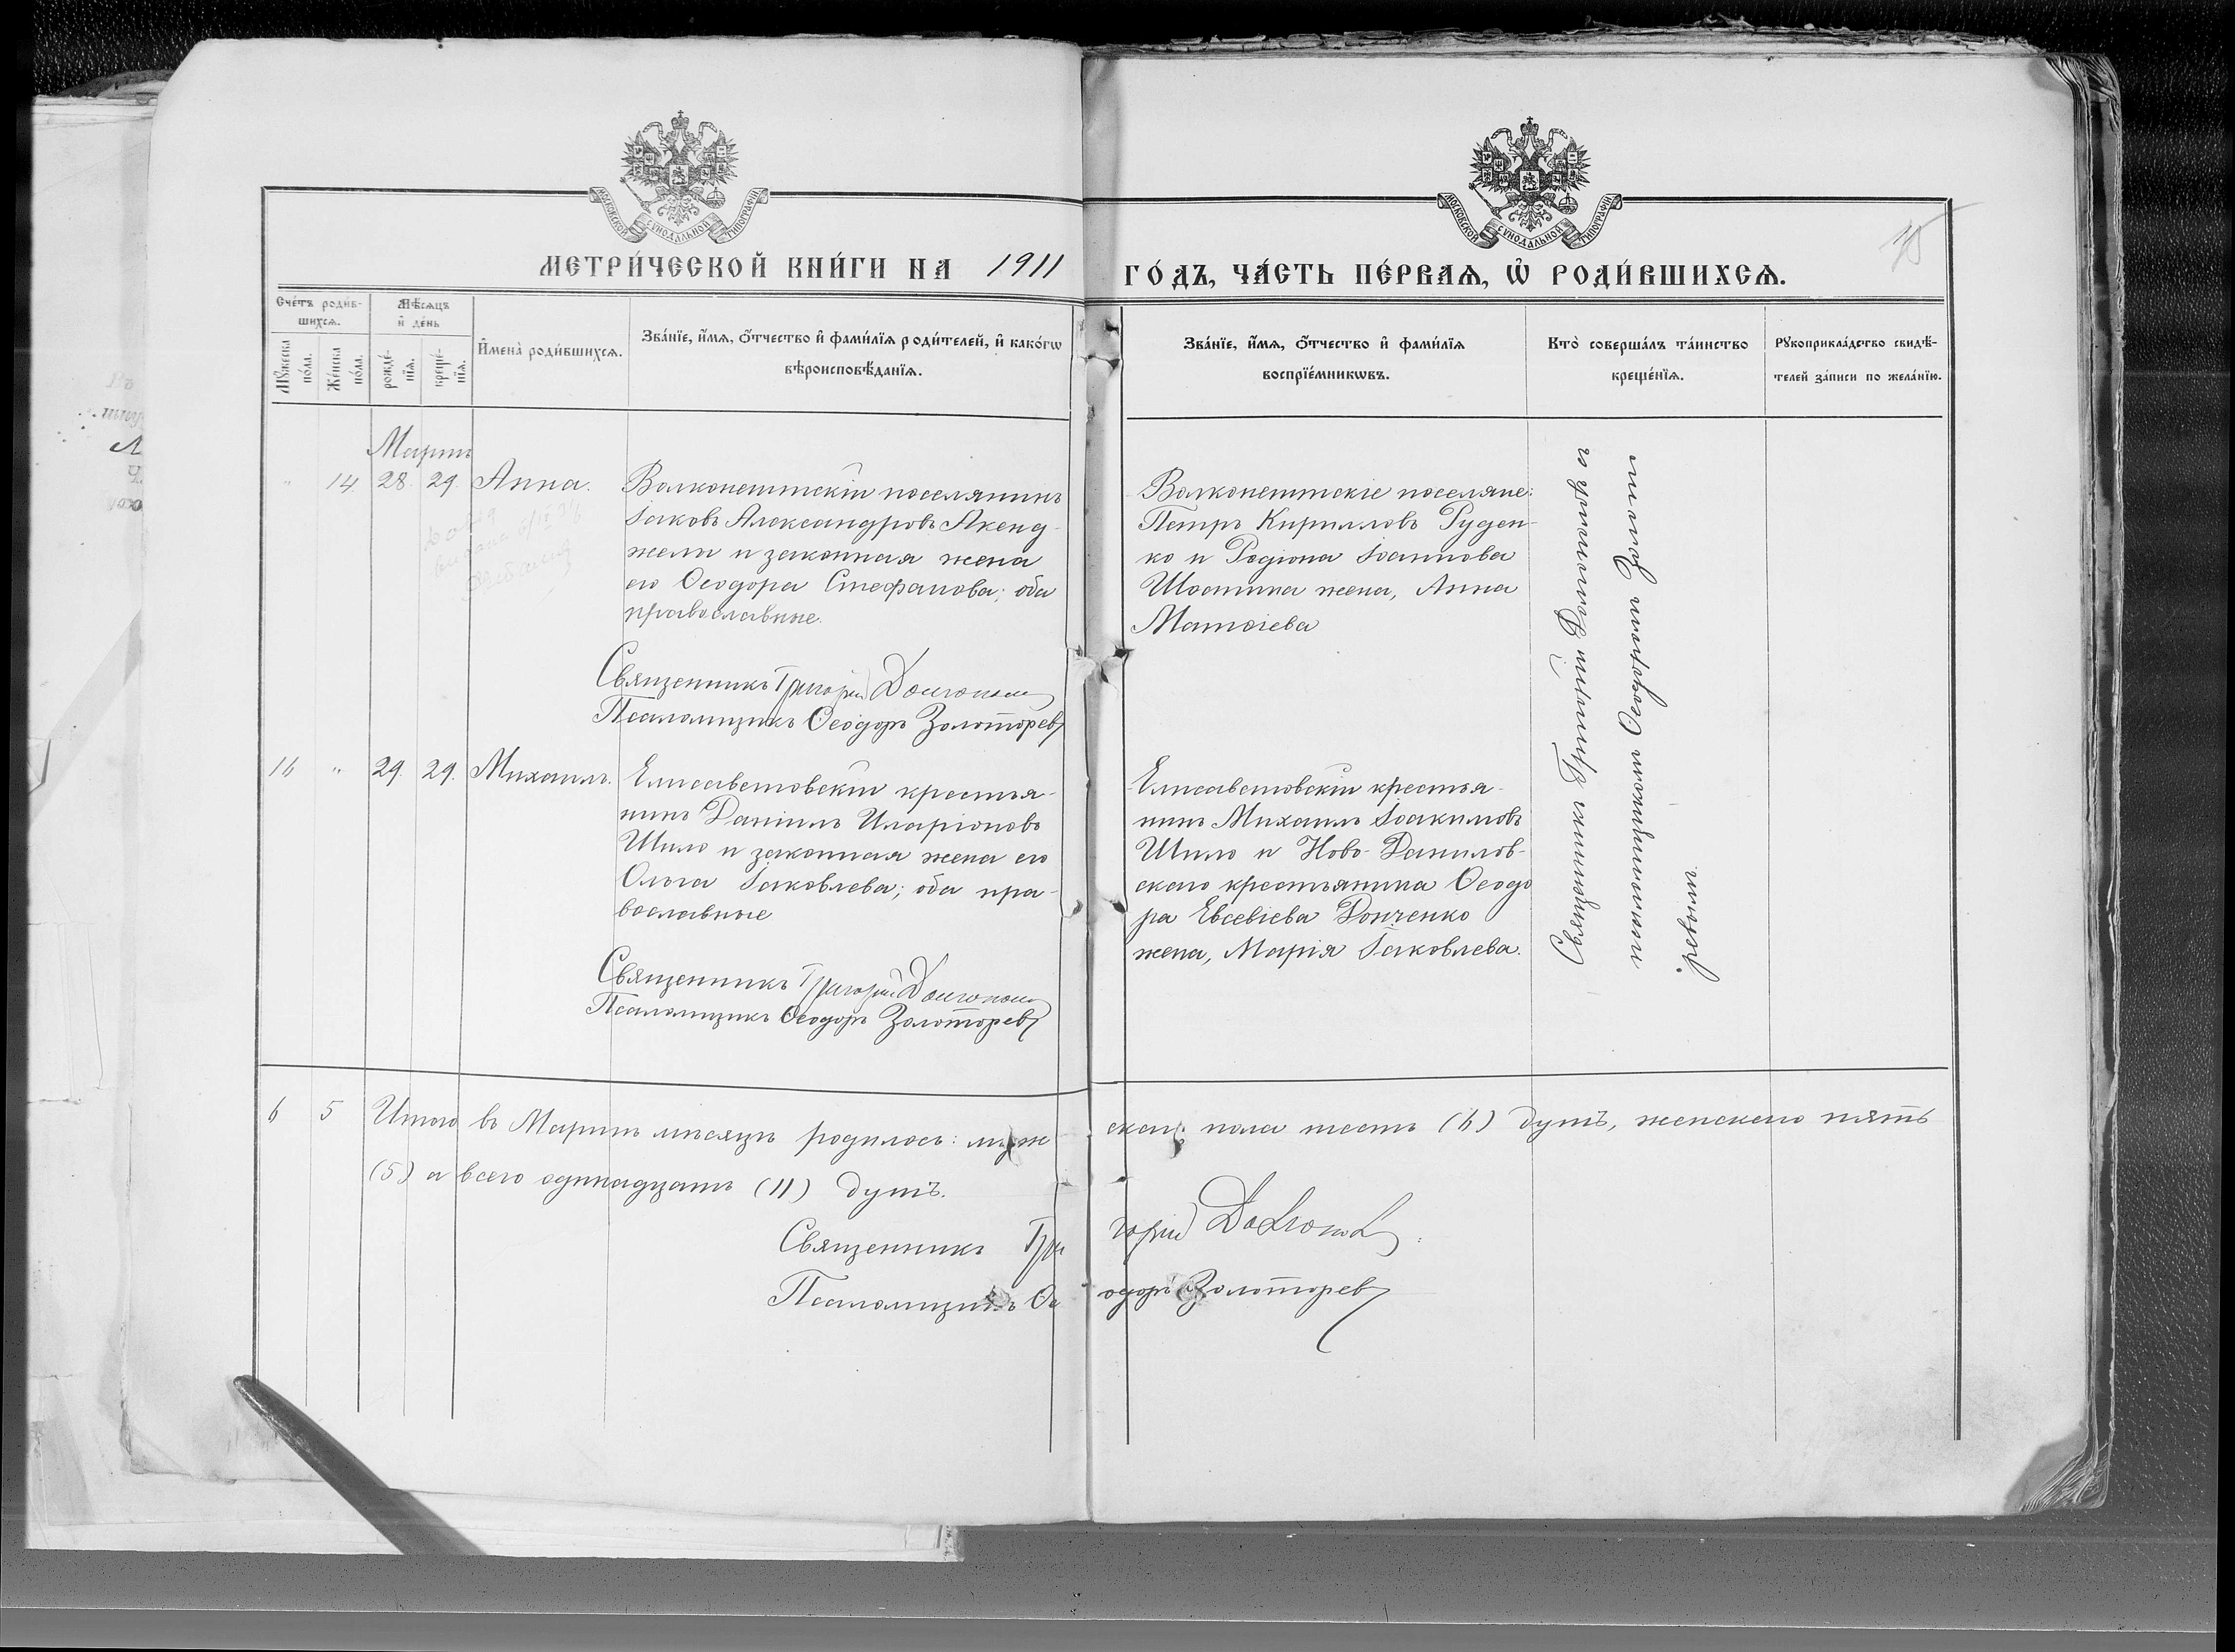 МОСКОВСКОЙ СѴНОДАЛЬНОЙ ТИПОГРАФІИ
МОСКОВСКОЙ СѴНОДАЛЬНОЙ ТИПОГРАФІИ
МЕТРИ́ЧЕСКОЙ КНИ́ГИ НА 1911 ГО́ДЪ, ЧА́СТЬ ПЕ́РВАѦ, Ѡ҆ РОДИ́ВШИХСѦ.
Сче́тъ роди́в-
шихсѧ.
Мꙋ́жеска
по́ла.
Же́нска
по́ла.
Мѣ́сѧцъ
и҆ де́нь
рожде́-
нїѧ.
креще́-
нїѧ.
И҆мена̀ роди́вшихсѧ.
Зва́нїе, и҆́мѧ, ѻ҆́тчество и҆ фами́лїѧ роди́телей, и҆ како́гѡ
вѣроисповѣ́данїѧ.
Зва́нїе, и҆́мѧ, ѻ҆́тчество и҆ фами́лїѧ
воспрїе́мникѡвъ.
Кто̀ соверша́лъ та́инство
креще́нїѧ.
Рꙋкоприкла́дство свидѣ́-
телей за́писи по жела́нїю.
Мартъ
" 14. 28. 29. Анна.
Волконештскій поселянинъ
Іаковъ Александровъ Акенд-
жели и законная жена
его Ѳеодора Стефанова; оба
православные.
Священникъ Григорій Долгополъ
Псаломщикъ Ѳеодоръ Золоторевъ
Волконештскіе поселяне:
Петръ Кирилловъ Руден-
ко и Родіона Іоаннова
Шостика жена, Анна
Матѳіева
Священникъ Григорій Долгополъ съ
псаломщикомъ Ѳеодоромъ Золото-
ревымъ.
16 " 29. 29. Михаилъ.
Елисаветовскій крестья-
нинъ Даніилъ Иларіоновъ
Шило и законная жена его
Ольга Іаковлева; оба пра-
вославные
Священникъ Григорій Долгополъ
Псаломщикъ Ѳеодоръ Золоторевъ
Елисаветовскій крестья-
нинъ Михаилъ Іоакимовъ
Шило и Ново-Данилов-
скаго крестьянина Ѳеодо
ра Евсевіева Донченко
жена, Марія Іаковлева.
6 5 Итого въ Мартѣ мѣсяцѣ родилось: муж скаго пола шесть (6) душъ, женскаго пять
(5) а всего одинадцать (11) душъ.
Священникъ Григорій Долгополъ
Псаломщикъ Ѳеодоръ Золоторевъ